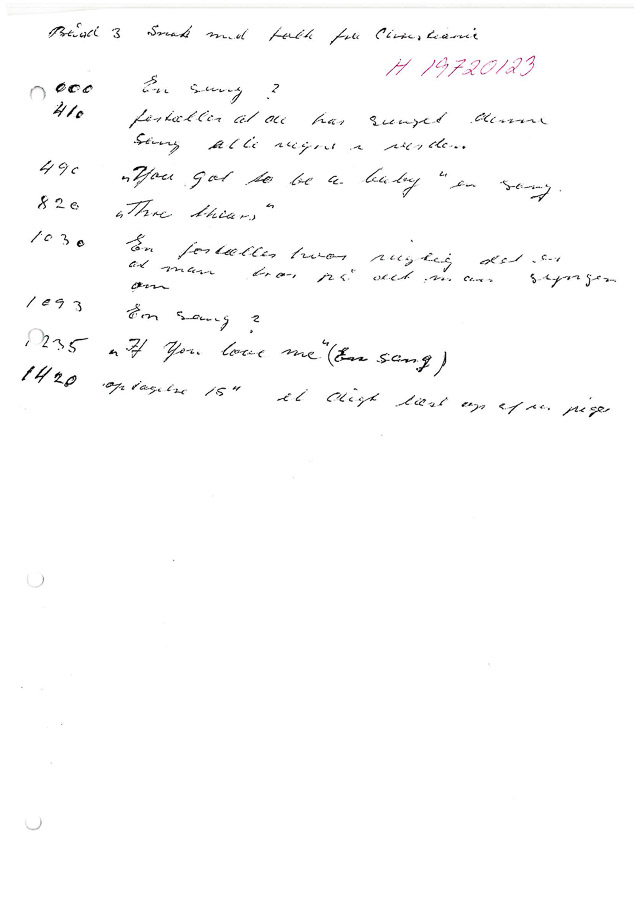 Bånd 3 Snak med folk fra Christiania
H 19720123
000 En sang ?
410 fortæller at de har sunget denne
sang alle vegne i verden
490 "You got to be a baby" en sang.
820 "Three
1030 En fortæller hvor vigtig det er
at man tror på det man synger
om
1093 En sang ?
1235 "If You love me" (En sang)
1420 optagelse 15" et digt læst op af en pige